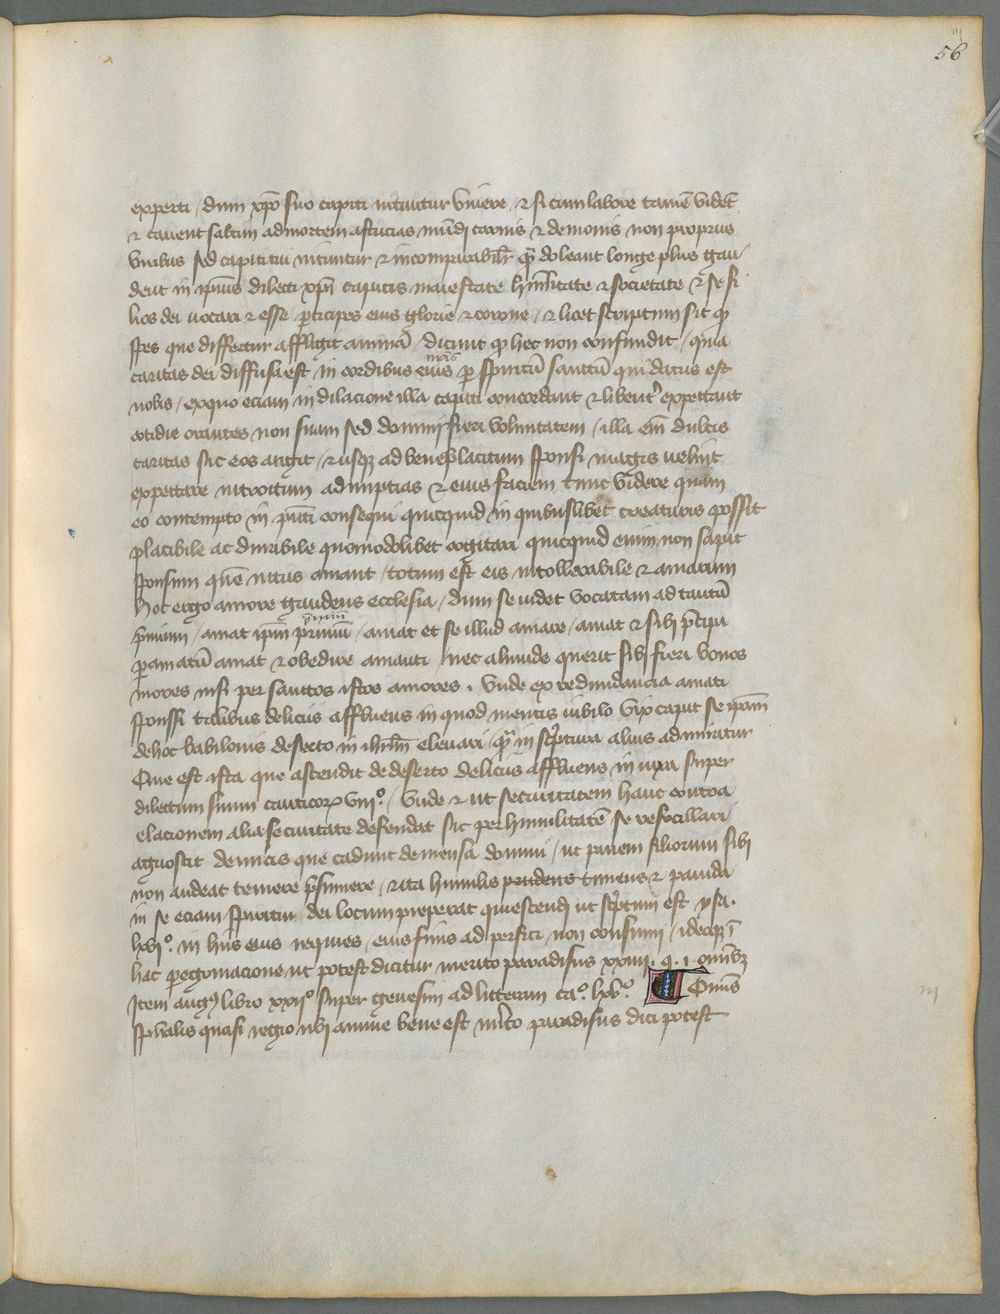 56
experti / dum xpo suo capiti nituntur viuere / et si cum labore tamē videt
et cauent saltim ad mortem astucias mūdi carnis et demonis non propriis
viribus sed capiti tui nituntur et incomparabilr quā doleant longe plus gau
dent in ipius dilecti xpi capitis maiestate humilitate et societate et se fi
lios dei uocari et esse pticipes eius glorie et corone / et licet scriptum sit qp
spes que differtur affligit animā / dicunt qp hec non confundit / quia
caritas dei diffusa est in cordibus eius p spiritū sanctū qui datus est
nobis / ex quo eciam in dilacione illa capiti concordant et libent' expectant
cotidie orantes non suam sed domini fieri voluntatem / illa em dulcis
caritas sic eos angit / et usqz ad beneplacitum sponsi magis uelint
expectare introitum ad nuptias et eius faciem tunc videre quam
eo contempto in pnti consequi quicquid in quibuslibet creaturis possit
placibile ac durabile quomodolibet cogitari quicquid enim non sapit
sponsum quē intus amant / totum est eis intollerabile et amarum
hoc ergo amore gaudens ecclesia / dum se uidet vocatam ad tantū
pmium / amat ipm primum / amat et se illud amare / amat et sibi pcipi
p amatū amat et obedire amanti / nec aliunde querit sibi fieri bonos
mores nisi per sanctos istos amores . vnde ex redundancia amati
sponsi talibus deliciis affluens in quod mentis iubilo vix capit se ipam
de hoc babilonis deserto in ihrlm eleuari / quā in scptura alius admiratur
Que est ista que ascendit de deserto deliciis affluens innixa super
dilectum suum canticorz viijº / vnde et ut securitatem hanc contra
elacionem alia securitate defendat sic per humilitatē se refocillari
agnoscit de micis que cadunt de mensa domini / ut panem filiorum sibi
non audeat temere psumere / et ita humilis prudens timens et pauida
in se eciam spiritui dei locum preperat quiescendi ut scptum est ysa.
lxviº. in hiis eius requies / eius finis ad perfici non consumi / ideoqz ī
hac pegrinacione ut potest dicitur merito paradisus xxiiij. q. i. omībz
Item augº libro xxijº super genesim ad litteram caº. lxvº. Omīs
spūalis quasi regio ubi anime bene est mito paradisus dici potest